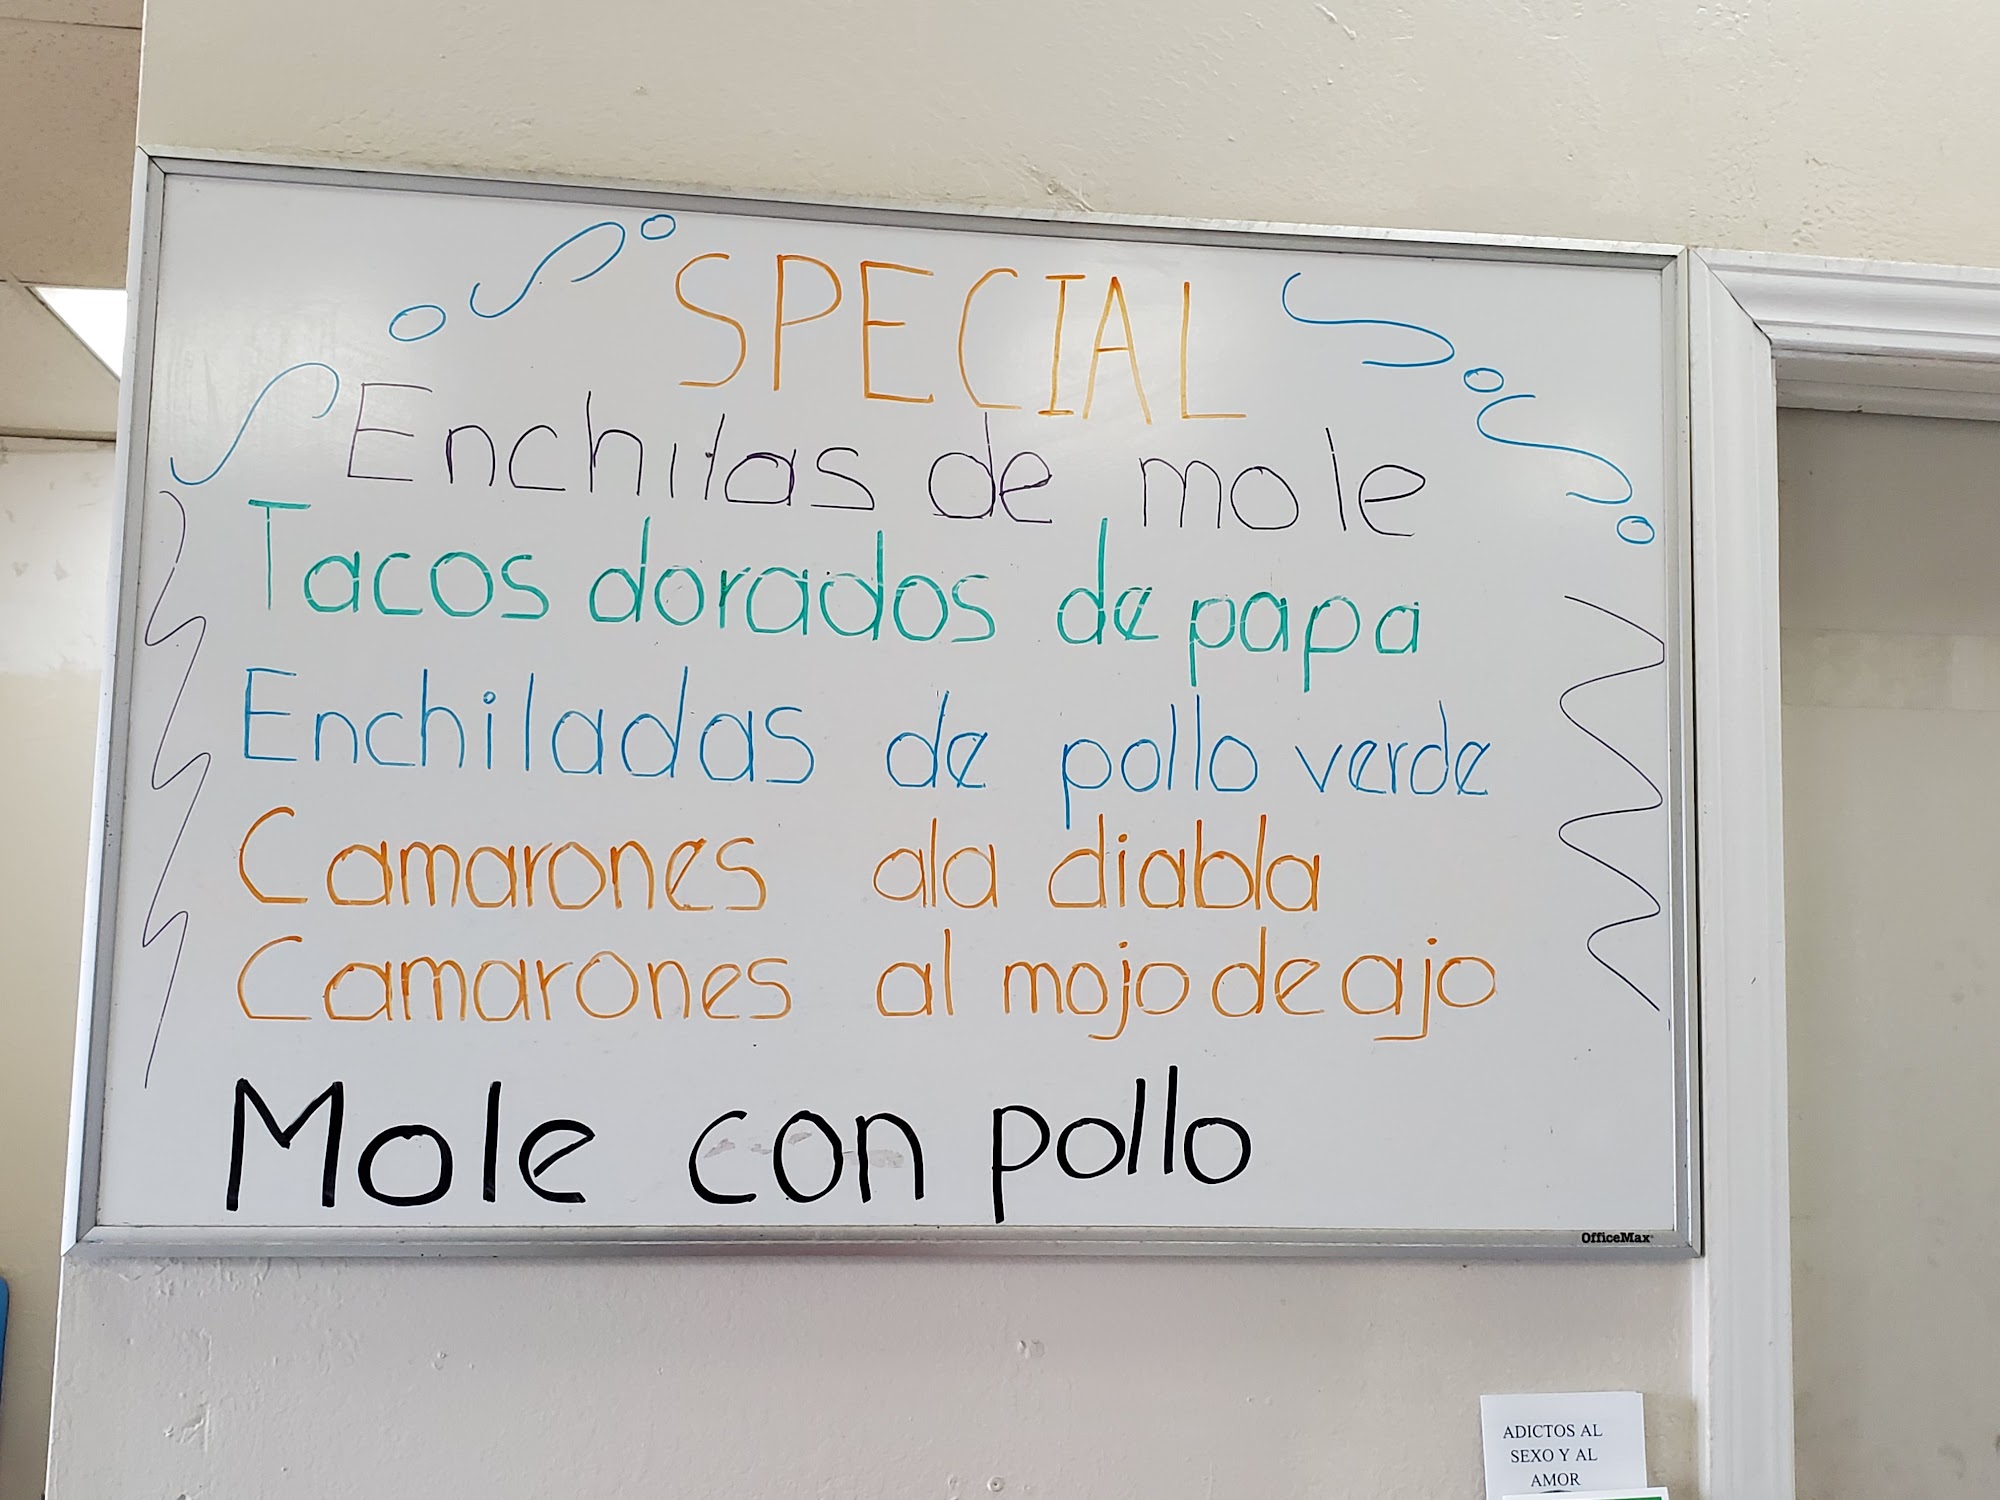 SPECIAL
Enchilas de mole
Tacos dorados de papa
Enchiladas de pollo verde
Camarones ala diabla
Camarones al mojo de ajo
Mole con pollo
OfficeMax
ADICTOS AL
SEXO Y AL
AMOR